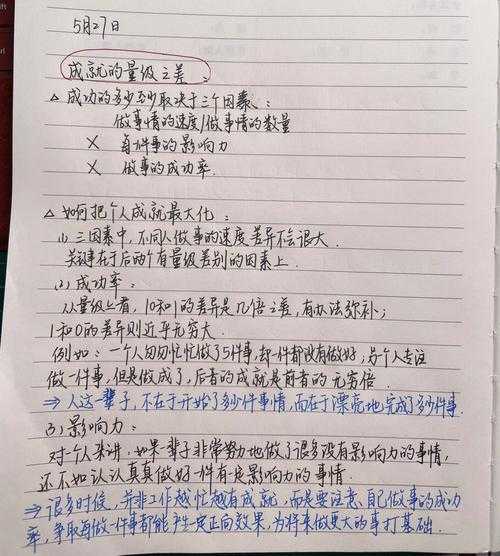 5月27日
成就的量级之差:
△ 成功的多少至少取决于三个因素:
做事情的速度/做事情的数量
× 每件事的影响力
× 做事的成功率.
△ 如何把个人成就最大化:
(1) 三因素中,不同人做事的速度差异不会很大.
关键在于后两个有量级差别的因素上.
(2) 成功率:
从量级上看,10和1的差异是几倍之差,有办法弥补;
1和0的差异则近乎无穷大.
例如:一个人匆匆忙忙做了5件事,却一件都没有做好,另个人专注
做一件事,但是做成了,后者的成就是前者的无穷倍.
⇒ 人这一辈子,不在于开始了多少件事情,而在于漂亮地完成了多少件事.
(3) 影响力:
对个人来讲,如果一辈子非常努力地做了很多没有影响力的事情,
还不如认认真真做好一件有一定影响力的事情.
⇒ 很多时候,并非工作越忙越有成就,而是要注意自己做事的成功
率,争取每做一件事都能产生一定正向效果,为将来做更大的事打基础.